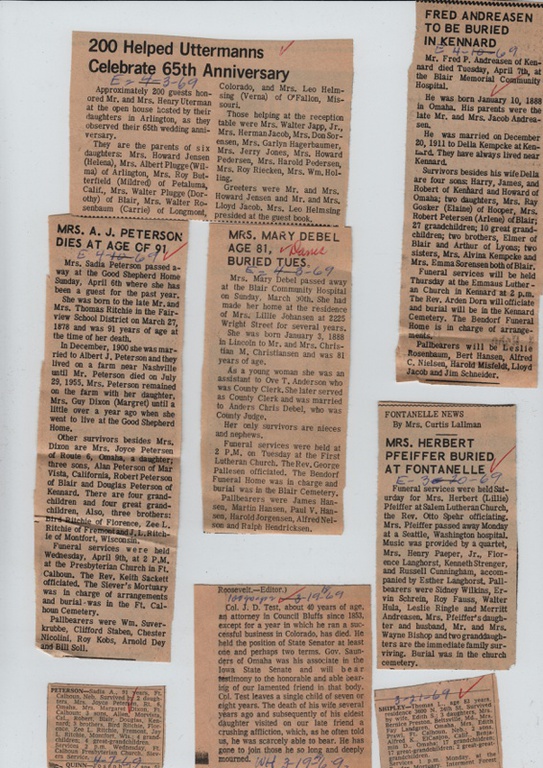 200 Helped Uttermanns
Celebrate 65th Anniversary
E- 4-3-69
Approximately 200 guests hon-
ored Mr. and Mrs. Henry Uterman
at the open house hosted by their
daughters in Arlington, as they
observed their 65th wedding anni-
versary.
They are the parents of six
daughters: Mrs. Howard Jensen
(Helena), Mrs. Albert Plugge (Wil-
ma) of Arlington, Mrs. Roy But-
terfield (Mildred) of Petaluma,
Calif., Mrs. Walter Plugge (Dor-
othy) of Blair, Mrs. Walter Ro-
senbaum (Carrie) of Longmont,
Colorado, and Mrs. Leo Helm-
sing (Verna) of O'Fallon, Mis-
souri.
Those helping at the reception
table were Mrs. Walter Japp, Jr.,
Mrs. Herman Jacob, Mrs. Don Sor-
ensen, Mrs. Garlyn Hagerbaumer,
Mrs. Jerry Jones, Mrs. Howard
Pedersen, Mrs. Harold Pedersen,
Mrs. Roy Riecken, Mrs. Wm. Hol-
ing.
Greeters were Mr. and Mrs.
Howard Jensen and Mr. and Mrs.
Lloyd Jacob, Mrs. Leo Helmsing
presided at the guest book.
FRED ANDREASEN
TO BE BURIED
IN KENNARD
E 4-10-69
Mr. Fred P. Andreasen of Ken-
nard died Tuesday, April 7th, at
the Blair Memorial Community
Hospital.
He was born January 10, 1888
in Omaha. His parents were the
late Mr. and Mrs. Jacob Andrea-
sen.
He was married on December
20, 1911 to Della Kempcke at Ken-
nard. They have always lived near
Kennard.
Survivors besides his wife Della
are four sons: Harry, James, and
Robert of Kennard and Howard of
Omaha; two daughters, Mrs. Ray
Gosker (Elaine) of Hooper, Mrs.
Robert Petersen (Arlene) of Blair;
27 grandchildren; 10 great grand-
children; two brothers, Elmer of
Blair and Arthur of Lyons; two
sisters, Mrs. Alvina Kempcke and
Mrs. Emma Sorensen both of Blair.
Funeral services will be held
Thursday at the Emmaus Luther-
an Church in Kennard at 2 p.m.
The Rev. Arden Dorn will officiate
and burial will be in the Kennard
Cemetery. The Bendorf Funeral
Home is in charge of arrange-
ments.
Pallbearers will be Leslie
Rosenbaum, Bert Hansen, Alfred
C. Nielsen, Harold Misfeldt, Lloyd
Jacob and Jim Schneider.
MRS. A. J. PETERSON
DIES AT AGE OF 91
E 4-10-69
Mrs. Sadia Peterson passed a-
way at the Good Shepherd Home
Sunday, April 6th where she has
been a guest for the past year.
She was born to the late Mr. and
Mrs. Thomas Ritchie in the Fair-
view School District on March 27,
1878 and was 91 years of age at
the time of her death.
In December, 1900 she was mar-
ried to Albert J. Peterson and they
lived on a farm near Nashville
until Mr. Peterson died on July
29, 1955. Mrs. Peterson remained
on the farm with her daughter,
Mrs. Guy Dixon (Margret) until a
little over a year ago when she
went to live at the Good Shepherd
Home.
Other survivors besides Mrs.
Dixon are Mrs. Joyce Petersen
of Route 6, Omaha, a daughter;
three sons, Alan Peterson of Mar
Vista, California, Robert Peterson
of Blair and Douglas Peterson of
Kennard. There are four grand-
children and four great grand-
children, Also, three brothers:
Bird Ritchie of Florence, Zee L.
Ritchie of Fremont and J. I. Ritch-
ie of Monfort, Wisconsin.
Funeral services were held
Wednesday, April 9th, at 2 P.M.
at the Presbyterian Church in Ft.
Calhoun. The Rev. Keith Sackett
officiated. The Slever's Mortuary
was in charge of arrangements
and burial was in the Ft. Cal-
houn Cemetery.
Pallbearers were Wm. Suver-
krubbe, Clifford Staben, Chester
Nicolini, Roy Kobs, Arnold Dey
and Bill Soll.
MRS. MARY DEBEL
AGE 81,
BURIED TUES.
E- 4-3-69
Mrs. Mary Debel passed away
at the Blair Community Hospital
on Sunday, March 30th. She had
made her home at the residence
of Mrs. Lillie Johnsen at 2225
Wright Street for several years.
She was born January 5, 1888
in Lincoln to Mr. and Mrs. Chris-
tian M. Christiansen and was 81
years of age.
As a young woman she was an
assistant to Ove T. Anderson who
was County Clerk. She later served
as County Clerk and was married
to Anders Chris Debel, who was
County Judge.
Her only survivors are nieces
and nephews.
Funeral services were held at
2 P.M. on Tuesday at the First
Lutheran Church. The Rev. George
Pallesen officiated. The Bendorf
Funeral Home was in charge and
burial was in the Blair Cemetery.
Pallbearers were James Han-
sen, Martin Hansen, Paul V. Han-
sen, Harold Jorgensen, Alfred Nel-
son and Ralph Hendricksen.
FONTANELLE NEWS
By Mrs. Curtis Lallman
MRS. HERBERT
PFEIFFER BURIED
AT FONTANELLE
E- 3-20-69
Funeral services were held Sat-
urday for Mrs. Herbert (Lillie)
Pfeiffer at Salem Lutheran Church,
the Rev. Otto Spehr officiating.
Mrs. Pfeiffer passed away Monday
at a Seattle, Washington hospital.
Music was provided by a quartet,
Mrs. Henry Paeper, Jr., Flor-
ence Langhorst, Kenneth Strenger,
and Russell Cunningham, accom-
panied by Esther Langhorst. Pall-
bearers were Sidney Wilkins, Er-
win Schrein, Roy Fauss, Walter
Hula, Leslie Ringle and Merritt
Andreasen. Mrs. Pfeiffer's daught-
er and husband, Mr. and Mrs.
Wayne Bishop and two granddaugh-
ters are the immediate family surv-
iving. Burial was in the church
cemetery.
Roosevelt.—Editor.)
3-19-69
Col. J. D. Test, about 40 years of age,
an attorney in Council Bluffs since 1853,
except for a year in which he ran a suc-
cessful business in Colorado, has died. He
held the position of State Senator at least
one and perhaps two terms. Gov. Saun-
ders of Omaha was his associate in the
Iowa State Senate and will bear
testimony to the honorable and able bear-
ing of our lamented friend in that body.
Col. Test leaves a single child of seven or
eight years. The death of his wife several
years ago and subsequently of his eldest
daughter visited on our late friend a
crushing affliction, which, as he often told
us, he was scarcely able to bear. He has
gone to join those he so long and deeply
mourned.
WH 3-19-69
PETERSON—Sadia A., 91
3-21-69
SHIPLEY—Thomas L., age 82